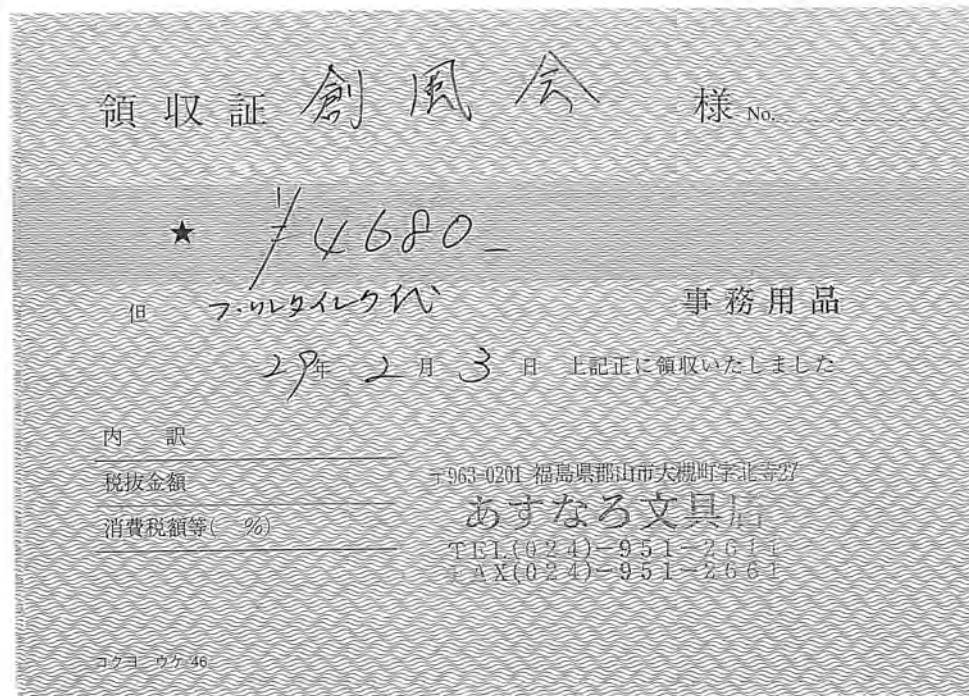 領収証 創風会 様 No.
★ ¥4680-
但 代 事務用品
29年 2月 3日 上記正に領収いたしました
内 訳
税抜金額
消費税額等( %)
〒963-0201 福島県郡山市大槻町字北寺27
あすなろ文具店
TEL(024)-951-2611
FAX(024)-951-2661
コクヨ ウケ-46